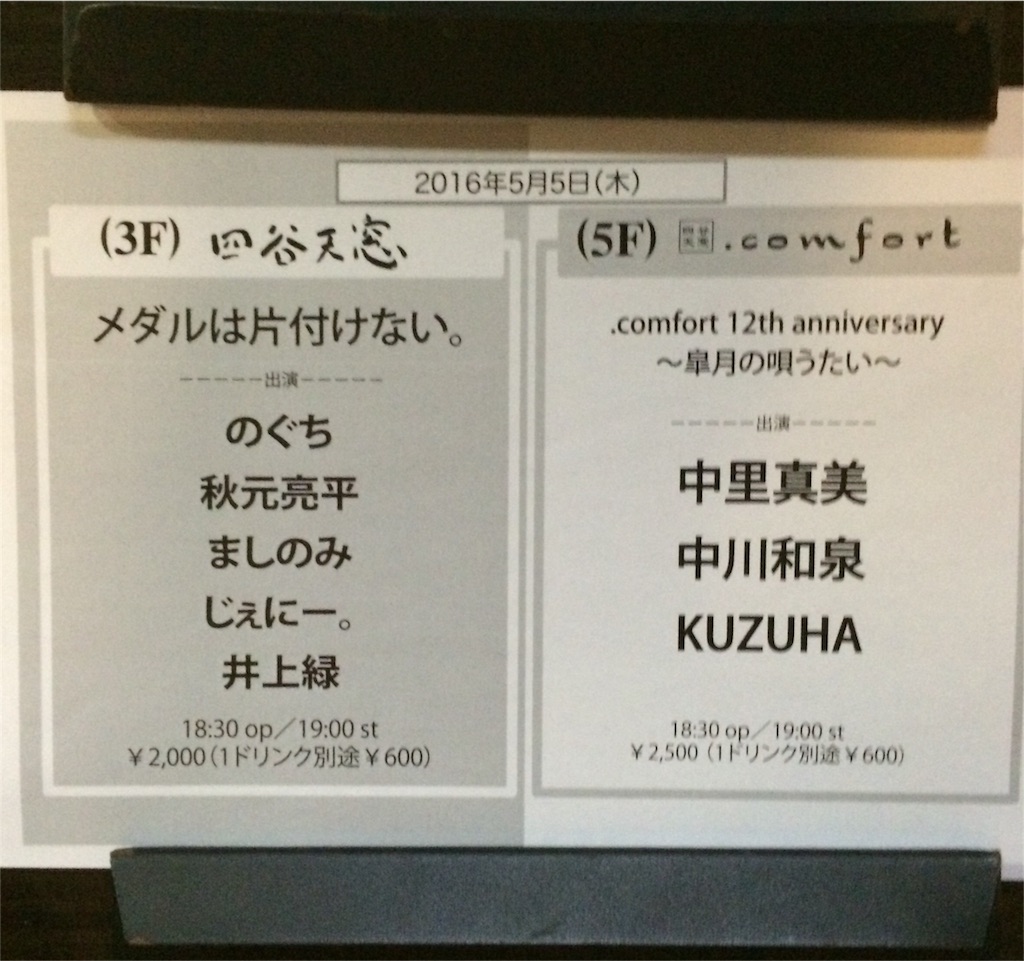 2016年5月5日(木)
(3F) 四谷天窓
メダルは片付けない。
-----出演-----
のぐち
秋元亮平
ましのみ
じぇにー。
井上緑
18:30 op/19:00 st
¥2,000(1ドリンク別途¥600)
(5F) 四谷天窓.comfort
.comfort 12th anniversary
~皐月の唄うたい~
-----出演-----
中里真美
中川和泉
KUZUHA
18:30 op/19:00 st
¥2,500 (1ドリンク別途¥600)